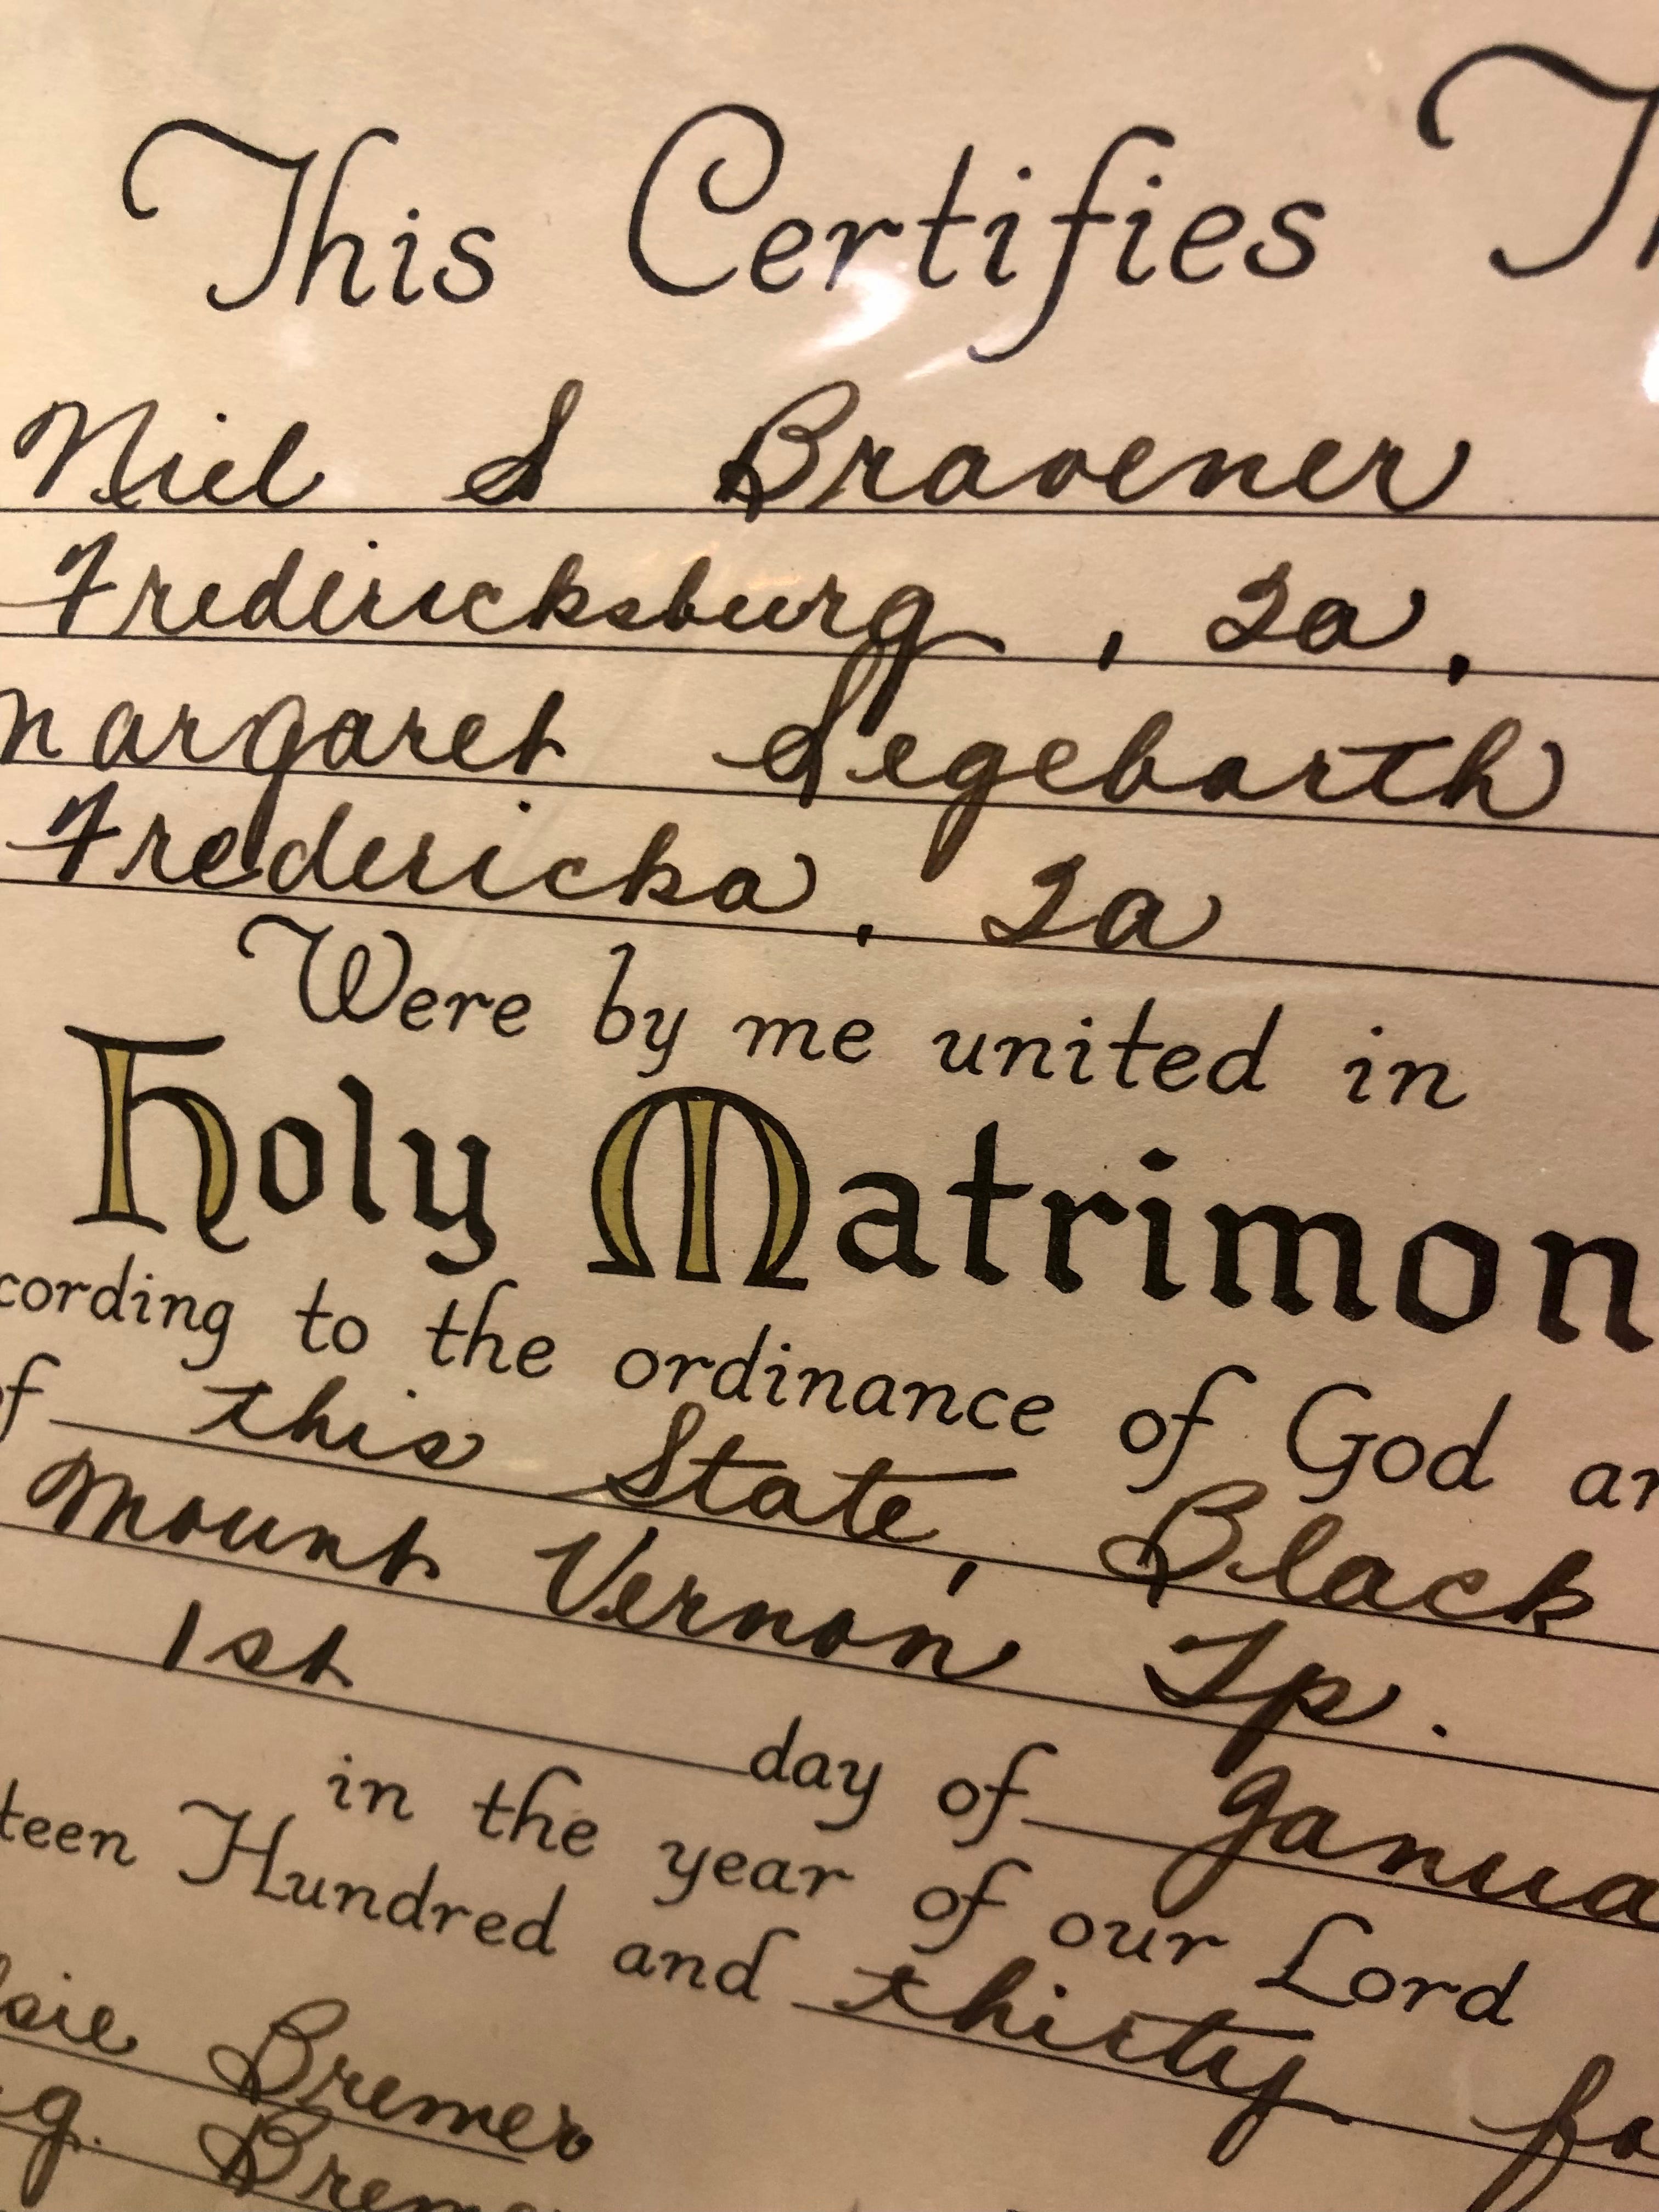 This Certifies Th
Niel S Bravener
Fredericksburg, Ia.
Margaret Segebarth
Fredericka, Ia
Were by me united in
Holy Matrimon
cording to the ordinance of God an
of this State, Black
Mount Vernon Tp.
1st day of Janua
in the year of our Lord
teen Hundred and thirty fo
sie Bremer
g. Brem